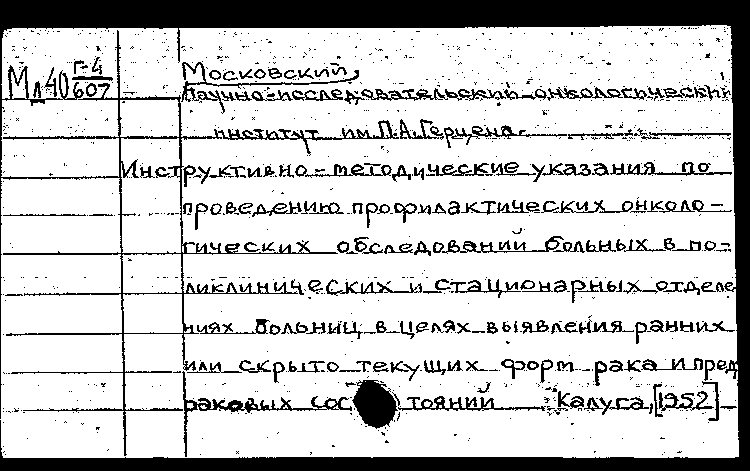 Мл40 Г-4/607
Московский,
Научно-исследовательский онкологический
институт им.П.А.Герцена.
Инструктивно-методические указания по
проведению профилактических онколо-
гических обследований больных в по-
ликлинических и стационарных отделе
ниях больниц в целях выявления ранних
или скрыто текущих форм рака и пред
раковых состояний Калуга, [1952]